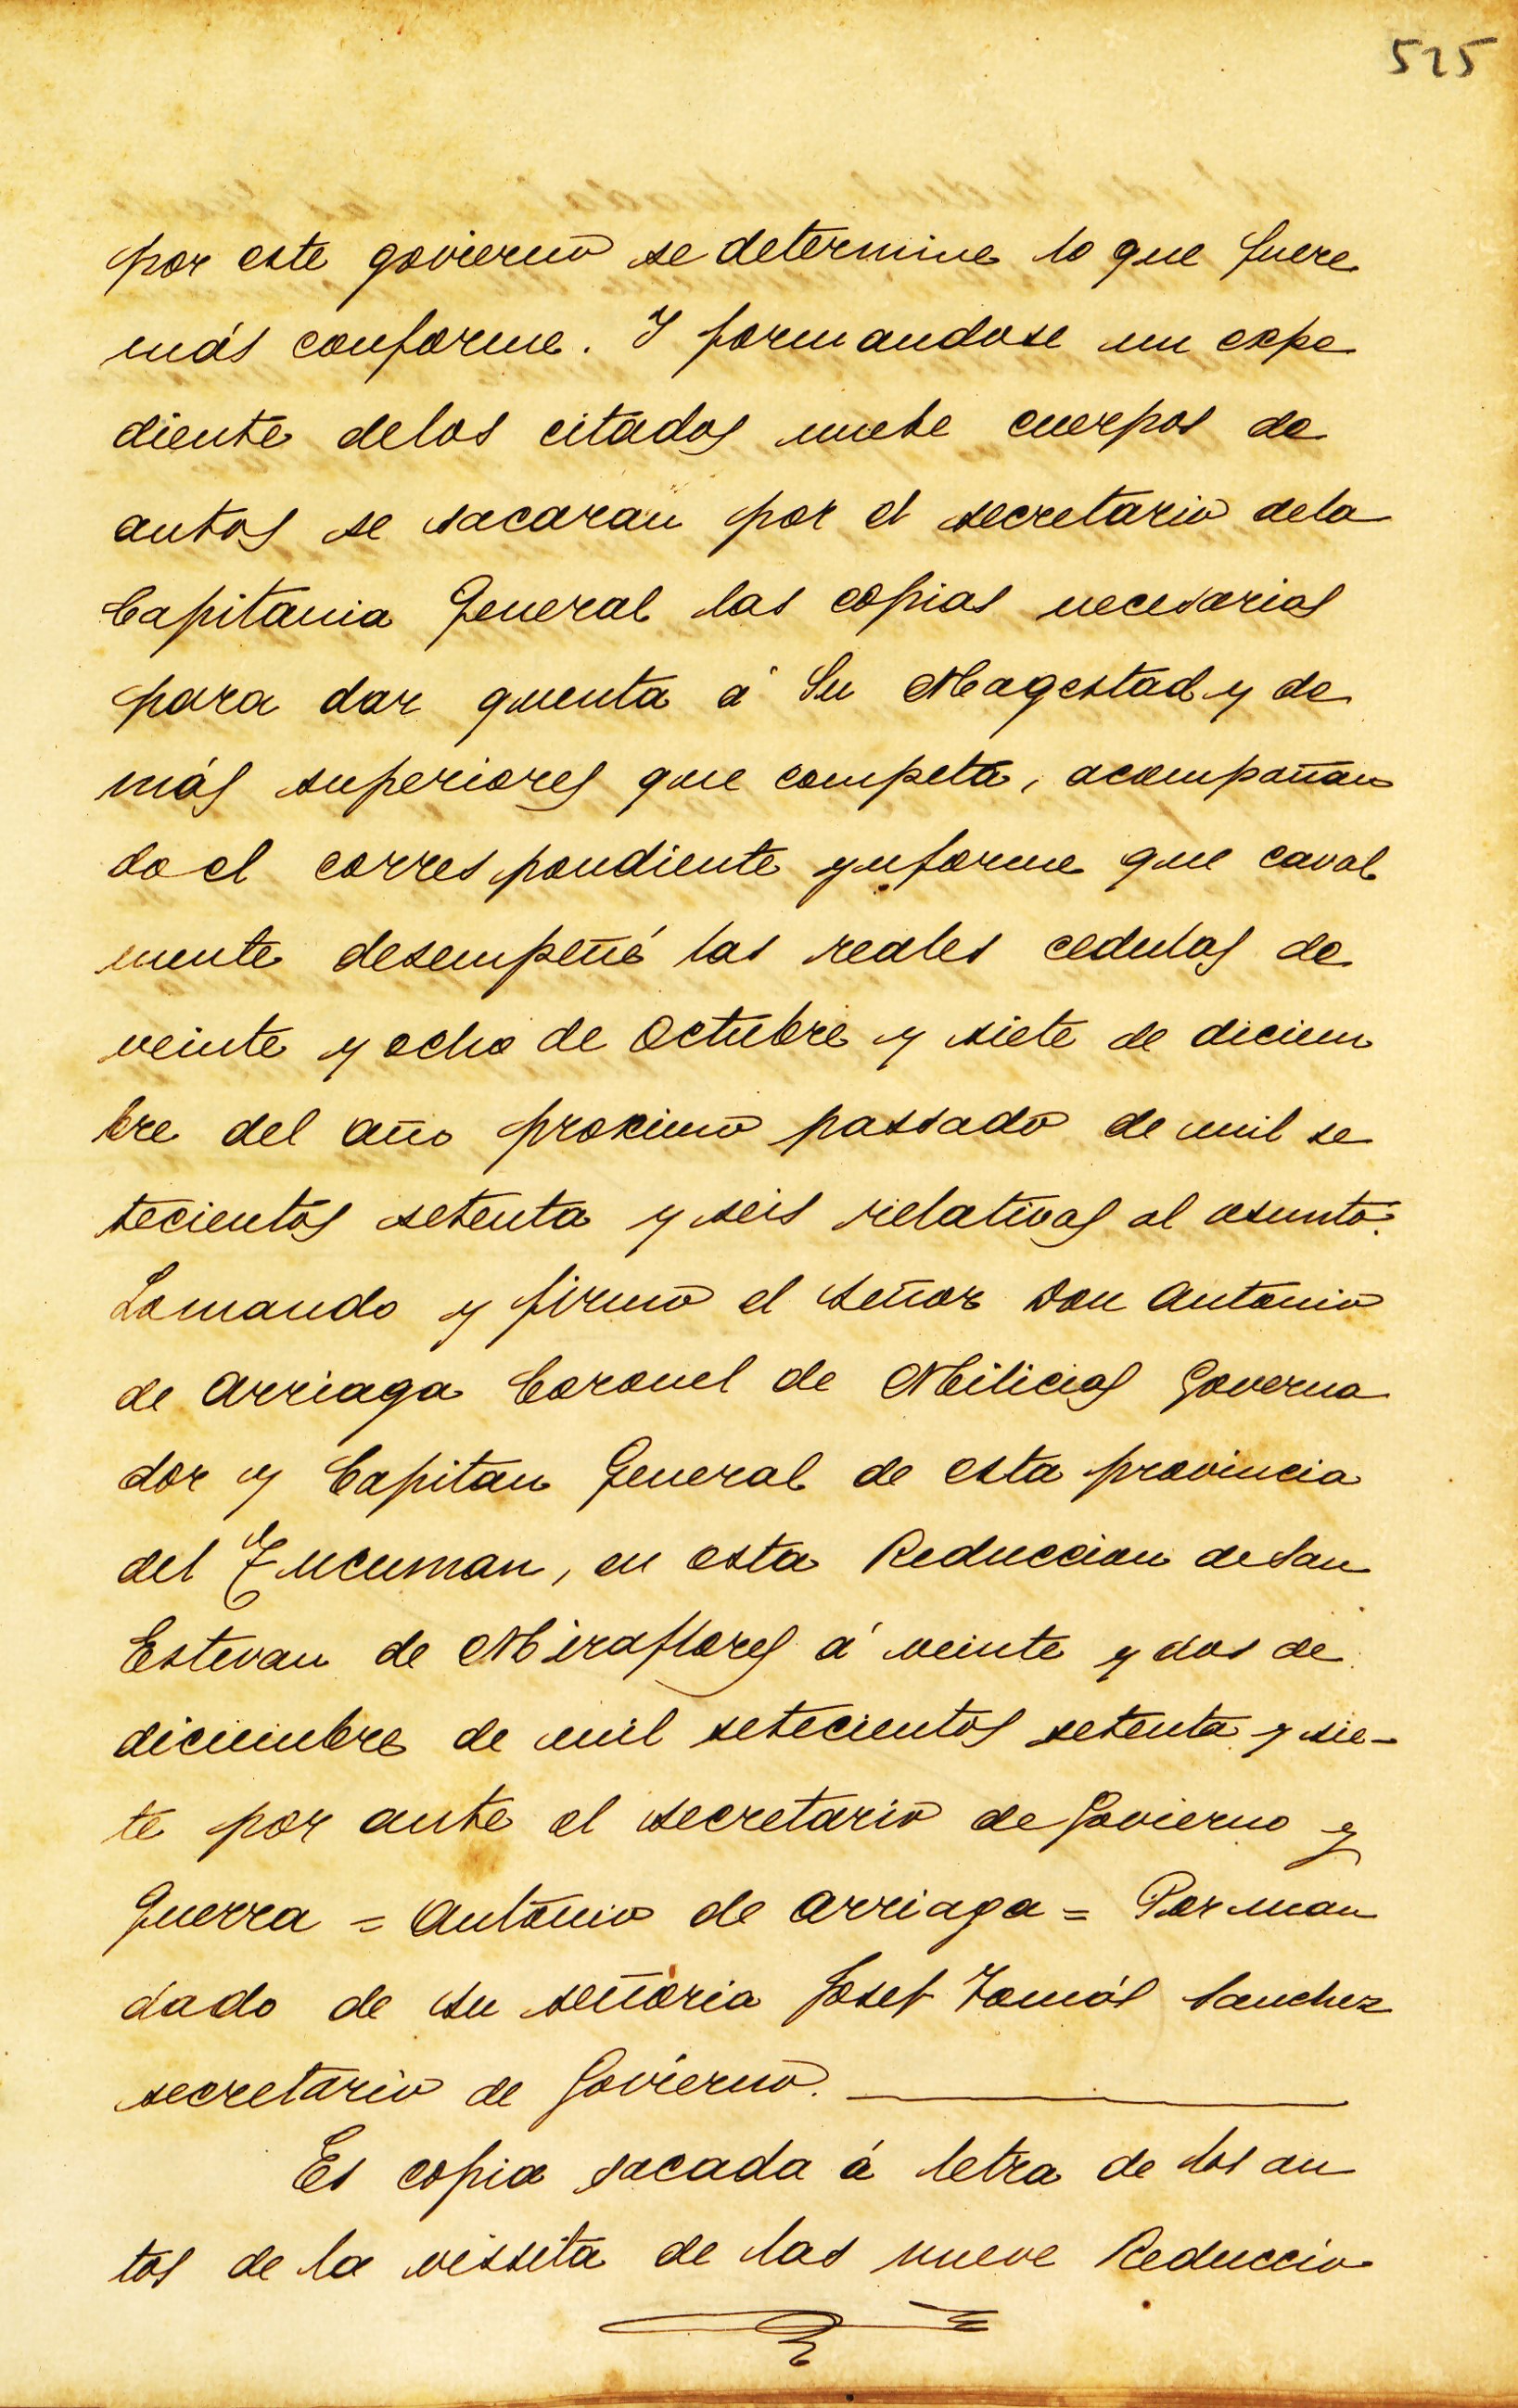 525
por este govierno se determine lo que fuere
más conforme. Y formandose un expe
diente delos citados nuebe cuerpos de
autos se sacaran por el secretario dela
Capitania General las copias necesarias
para dar quenta á Su Magestad y de
más superiores que competa, acompañan
do el correspondiente ynforme que caval
mente desempeñé las reales cedulas de
veinte y ocho de Octubre y siete de diciem
bre del año proximo passado de mil se
tecientos setenta y seis relativas al asunto.
Lomando y firmo el señor Don Antonio
de Arriaga Coronel de Milicias Governa
dor y Capitan General de esta provincia
del Tucuman, en esta Reduccion de San
Estevan de Miraflores á veinte y dos de
diciembre de mil setecientos setenta y sie-
te por ante el secretario de Govierno y
Guerra = Antonio de Arriaga = Por man
dado de su señoria Josef Tomás Sanchez
secretario de Govierno.
Es copia sacada á letra de los au
tos de la vissita de las nueve Reduccio